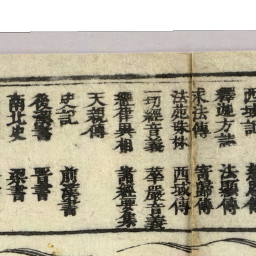 西域記
釋迦方誌 法顯傳
求法傳 寄歸傳
法苑珠林 西域傳
一切經音義 華嚴音義
經律異相 諸經要集
天親傳
史記 前漢書
後漢書 晋書
南北史 梁書